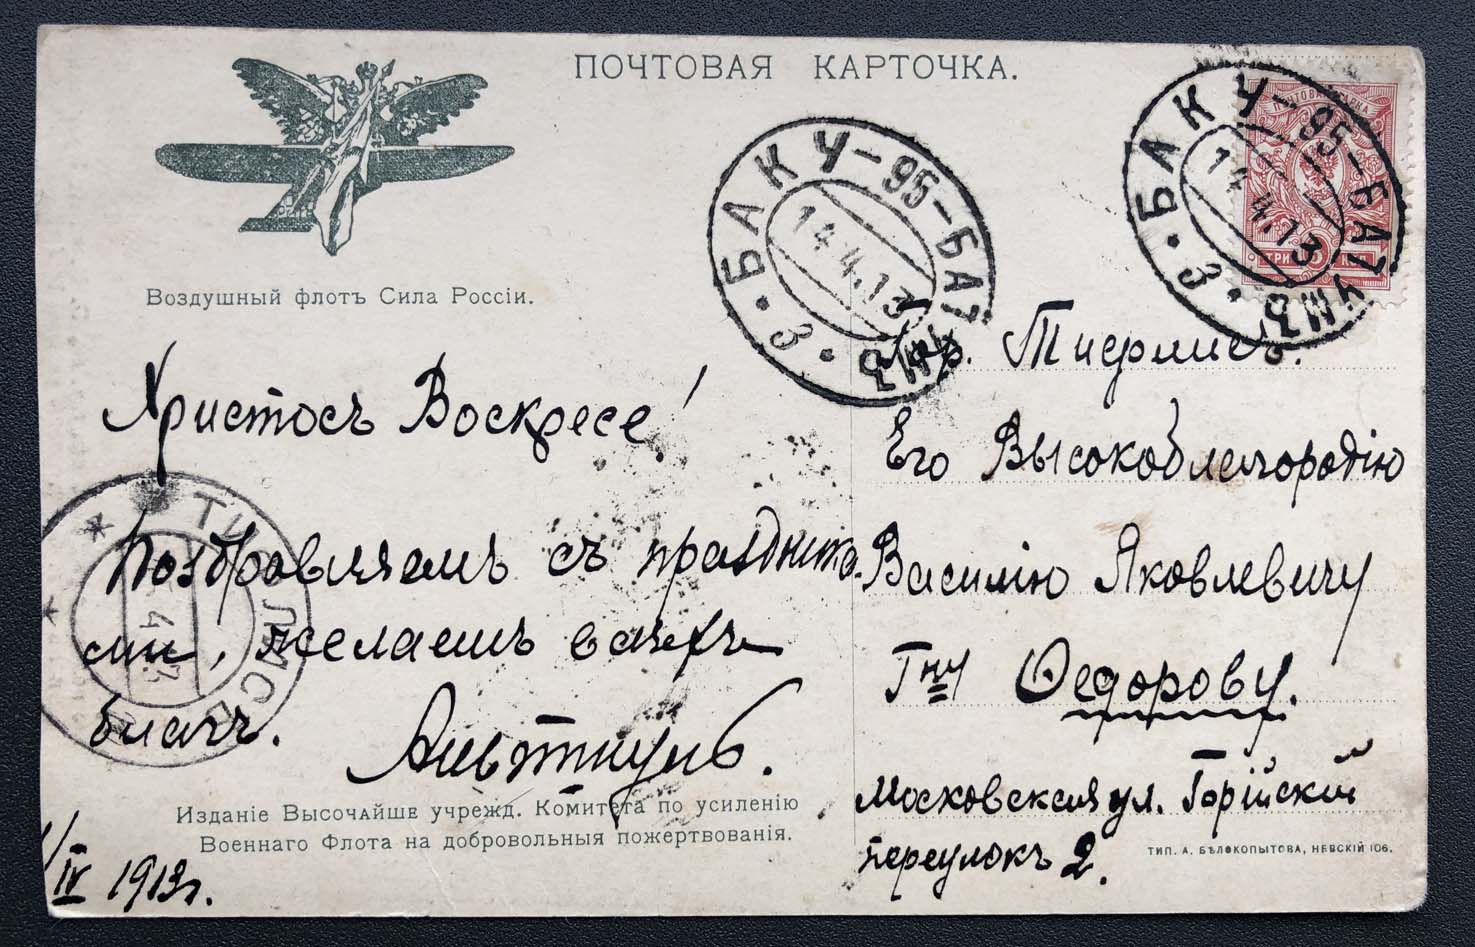 ПОЧТОВАЯ КАРТОЧКА.
БАКУ-95-БАТ
14.4.13
3
БАКУ-95-БАТ
14.4.13
3
ПОЧТОВАЯ МАРКА
ТРИ КОП
Воздушный флотъ Сила Россіи.
Христосъ Воскресе!
Поздравляемъ съ праздника
ми, желаемъ всѣхъ
благъ.
ТИФЛИСЪ
Гор. Тифлисъ.
Его Высокоблагородію
Василію Яковлевичу
Гну Ѳедорову.
Московская ул. Горійскій
переулокъ 2.
Изданіе Высочайше учрежд. Комитета по усиленію
Военнаго Флота на добровольныя пожертвованія.
ТИП. А. БѢЛОКОПЫТОВА, НЕВСКІЙ 106.
IV 1913г.